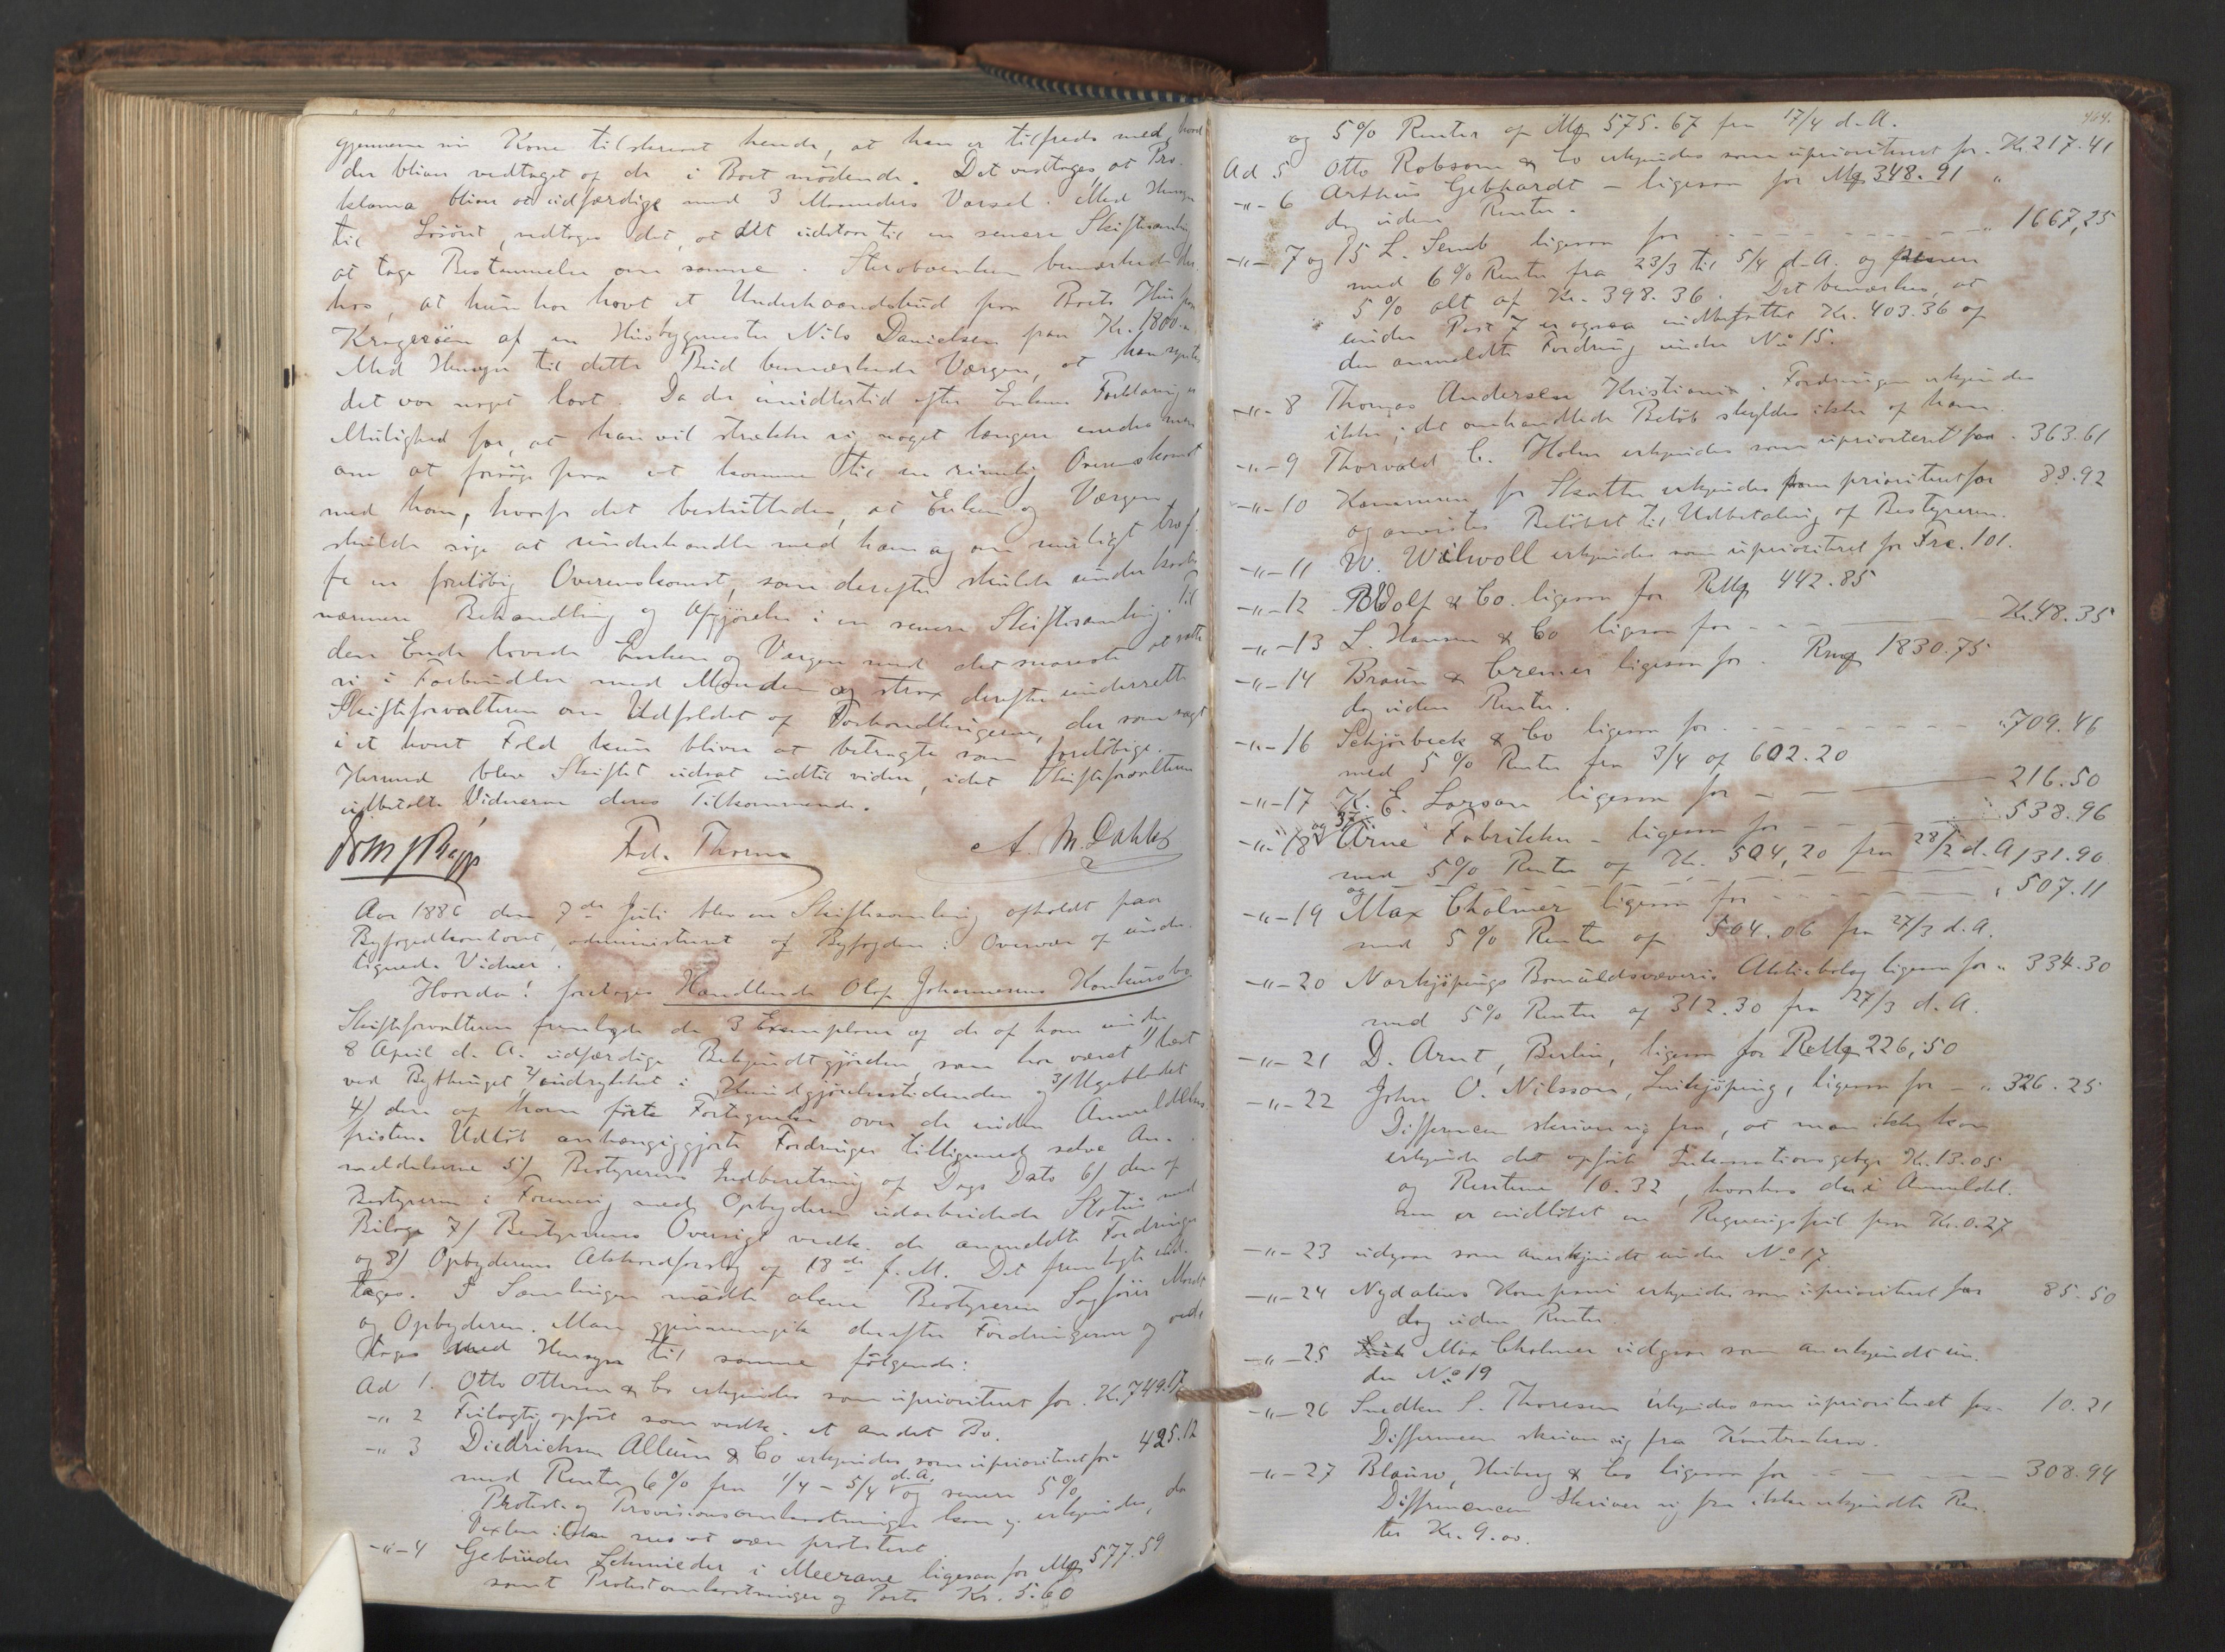 gjennem sin Kone tilskrevet hende, at han er tilfreds med, hvad
der bliver vedtaget af de i Boet mødende. Det vedtages at Pro-
klama bliver at udfærdige med 3 Maaneders Varsel. Med Hensyn
til Løsøret, vedtoges det, at det udstaar til en senere Skiftesamling
at tage Bestemmelse om samme. Sterboenken bemærkede der-
hos, at hun har havt et Underhaandsbud paa Boets Hus paa
Kragerøen af en Husbygmester Nils Danielsen paa Kr. 1800.
Med Hensyn til dette Bud bemærkede Værgen, at han synes
det var noget lavt. Da der imidlertid efter Enkens Forklaring er
Mulighed for, at han vil strække sig noget længere
om at forsøge paa at komme til en rimelig Overenskomst
med ham, hvorfor det besluttedes, at Enken og Værgen
skulde søge at underhandle med ham og om muligt træf-
fe en foreløbig Overenskomst, som derefter skulde under kastes
nærmere Behandling og Afgjørelse i en senere Skiftesamling. Til
den Ende lovede Enken og Værgen med det snareste at sætte
si i Forbindelse med Manden og strax derefter underrette
Skifteforvalteren om Udfaldet af Forhandlingerne, der som sagt
i et hvert Fald kun bliver at betragte som foreløbige.
Hermed blev Skiftet udsat indtil videre, idet Skifteforvalteren
udbetalte Vidnerne deres Tilkommende.
Fred. Thorne A. M. Dahl
Aar 1886 den 7de Juli blev en Skiftesamling afholdt paa
Byfogedkontoret, administreret af Byfogden i Overvær af under-
tegnede Vidner.
Hvorda! foretoges Handlende Olaf Johannesens Konkursbo
Skifteforvalteren fremlagde de 3 Exemplarer af de af ham under
8 April d. A. udfærdige Bekjendtgjørelser, som har været 1/ læst
ved Bythinget 2/ indrykket i Kundgjørelsestidenden og 3/ Ugebladet
4/ den af ham førte Fortegnelse over de inden Anmeldelses-
fristens Udløb anhængiggjorte Fordringer tilligemed selve An-
meldelserne 5/ Bestyrerens Indberetning af Dags Dato 6/ den af
Bestyreren i Forening med Opbyderen udarbeidede Status med
Bilage 7/ Bestyrerens Oversigt vedk. de anmeldte Fordringer
og 8/ Opbyderens Akkordforslag af 18de f. M. Det fremlagte ind-
tages. I Samlingen mødte alene Bestyreren Sagfører
og Opbyderen. Man gjennemgik derefter Fordringerne og ved-
toges med Hensyn til samme følgende:
Ad 1. Otto Ottesen & Co erkjendes som uprioriteret for. Kr. 749.17
-"- 2 Feilagtig opført som vedk. et andet Bo.
-"- 3 Diedrichsen Alleum & Co erkjendes som uprioriteret for 425.12
med Renter 6% fra 1/4 - 5/4 d. A. og senere 5%
Protest og Provisionsomkostninger kan ej erkjendes, da
Vexlen ikke sees at være protesteret.
-"- 4 Gebrüder Schmieder i Meerane ligesaa for Mk 577.59
samt Protestomkostninger og Porto Kr. 5.60
464.
og 5% Renter af Mk 575.67 fra 17/4 d. A.
Ad 5 Otto Robson & Co erkjendes som uprioriteret for Kr. 217.41
-"- 6 Arthur Gebhardt - ligesaa for Mk 348.91 "
dog uden Renter.
-"- 7 og 15 L. Semb ligesaa for - - - " 1667,25
med 6% Renter fra 23/3 til 5/4 d. A. og senere
5% alt af Kr. 398.36. Det bemærkes, at
under Post 7 er ogsaa indbefattet Kr. 403.36 af
den anmeldte Fordring under No 15.
-"- 8 Thomas Andersen Kristiania. Fordringen erkjendes
ikke; det omhandlede Beløb skyldes ikke af ham.
-"- 9 Thorvald C. Holm erkjendes som uprioriteret for - 363.61
-"- 10 Kommunen for Skatter erkjendes som prioriteret for 88.92
og anvistes Beløbet til Udbetaling af Bestyreren.
-"- 11 W. Wilwoll erkjendes som uprioriteret for Frc. 101.
-"- 12 Wolf & Co. ligesaa for RMk 442.85
-"- 13 L. Hansen & Co ligesaa for - - Kr. 48.35
-"- 14 Braun & Cremer ligesaa for. Rmk 1830.75
dog uden Renter.
-"- 16 Schjørbeck & Co ligesaa for - - - " 709.46
med 5% Renter fra 3/4 af 602.20
-"- 17 K. E. Larson ligesaa for - - 216.50
-"- 18 og Arne Fabrikker - ligesaa for - - - 538.96
med 5% Renter af Kr. 504,20 fra 28/2 d. A. 131.90
-"- 19 og Max Cholmer ligesaa for - - - " 507.11
med 5% Renter af 504.06 fra 27/3 d. A.
-"- 20 Norkjøpings Bomuldsvæveris Aktiebolag ligesaa for " 334.30
med 5% Renter af 312.30 fra 27/3 d. A.
-"- 21 D. Arnt, Berlin, ligesaa for RMk 226,50
-"- 22 John O. Nilsson, Linkjøping, ligesaa for - " 326.25
Differencen skriver sig fra, at man ikke kan
erkjende det opførte gebyr Kr. 13.05
og Renterne 10.32, hvorhos der i Anmeldel-
sen er indløbet en Regningsfeil paa Kr. 0.27
-"- 23 udgaar som anerkjendt under No 17
-"- 24 Nydalens Kompani erkjendes som uprioriteret for 85.50
dog uden Renter.
-"- 25 Max Cholmer udgaar som anerkjendt un-
der No 19
-"- 26 Snedker S. Thoresen erkjendes som uprioriteret for - 10.21
Differencen skriver sig fra Kontrakrav.
-"- 27 Blauw, Heiberg & Co ligesaa for - - - 308.94
Differencen skriver sig fra ikke erkjendte Ren-
ter Kr. 9.00.